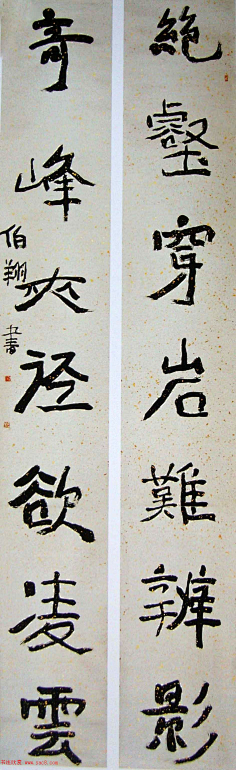 絶壑穿岩難辨影
奇峰夾徑欲凌雲
伯翔書